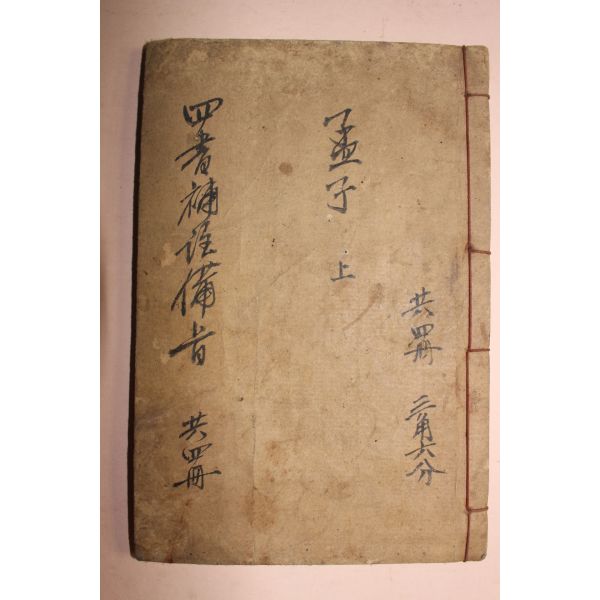 共四冊 二角六分
孟子 上
四書補註備旨 共四冊